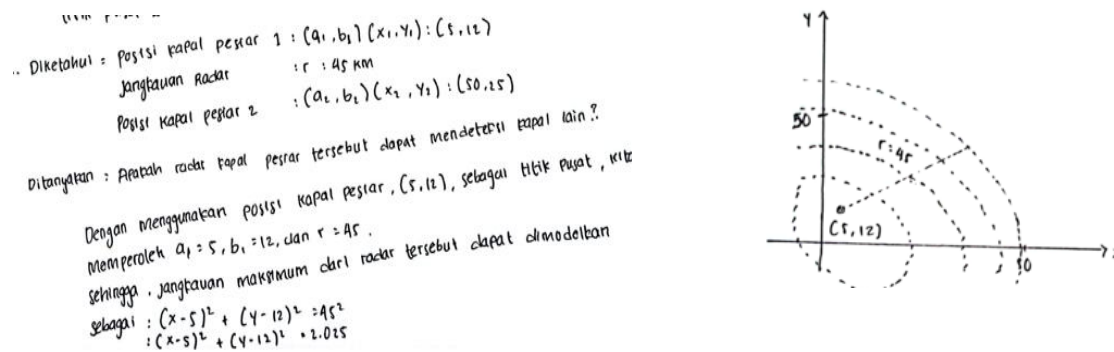 Diketahui : Posisi kapal pesiar 1 : (a₁, b₁) (x₁, y₁) : (5, 12)
Jangkauan Radar : r : 45 km
Posisi kapal pesiar 2 : (a₂, b₂) (x₂, y₂) : (50, 25)
Ditanyakan : Apakah radar kapal pesiar tersebut dapat mendeteksi kapal lain ?
Dengan menggunakan posisi kapal pesiar, (5, 12), sebagai titik pusat, kita
memperoleh a₁ = 5, b₁ = 12, dan r = 45.
sehingga, jangkauan maksimum dari radar tersebut dapat dimodelkan
sebagai : (x-5)² + (y-12)² = 45²
: (x-5)² + (y-12)² = 2.025
Y
50
r : 45
(5, 12)
50